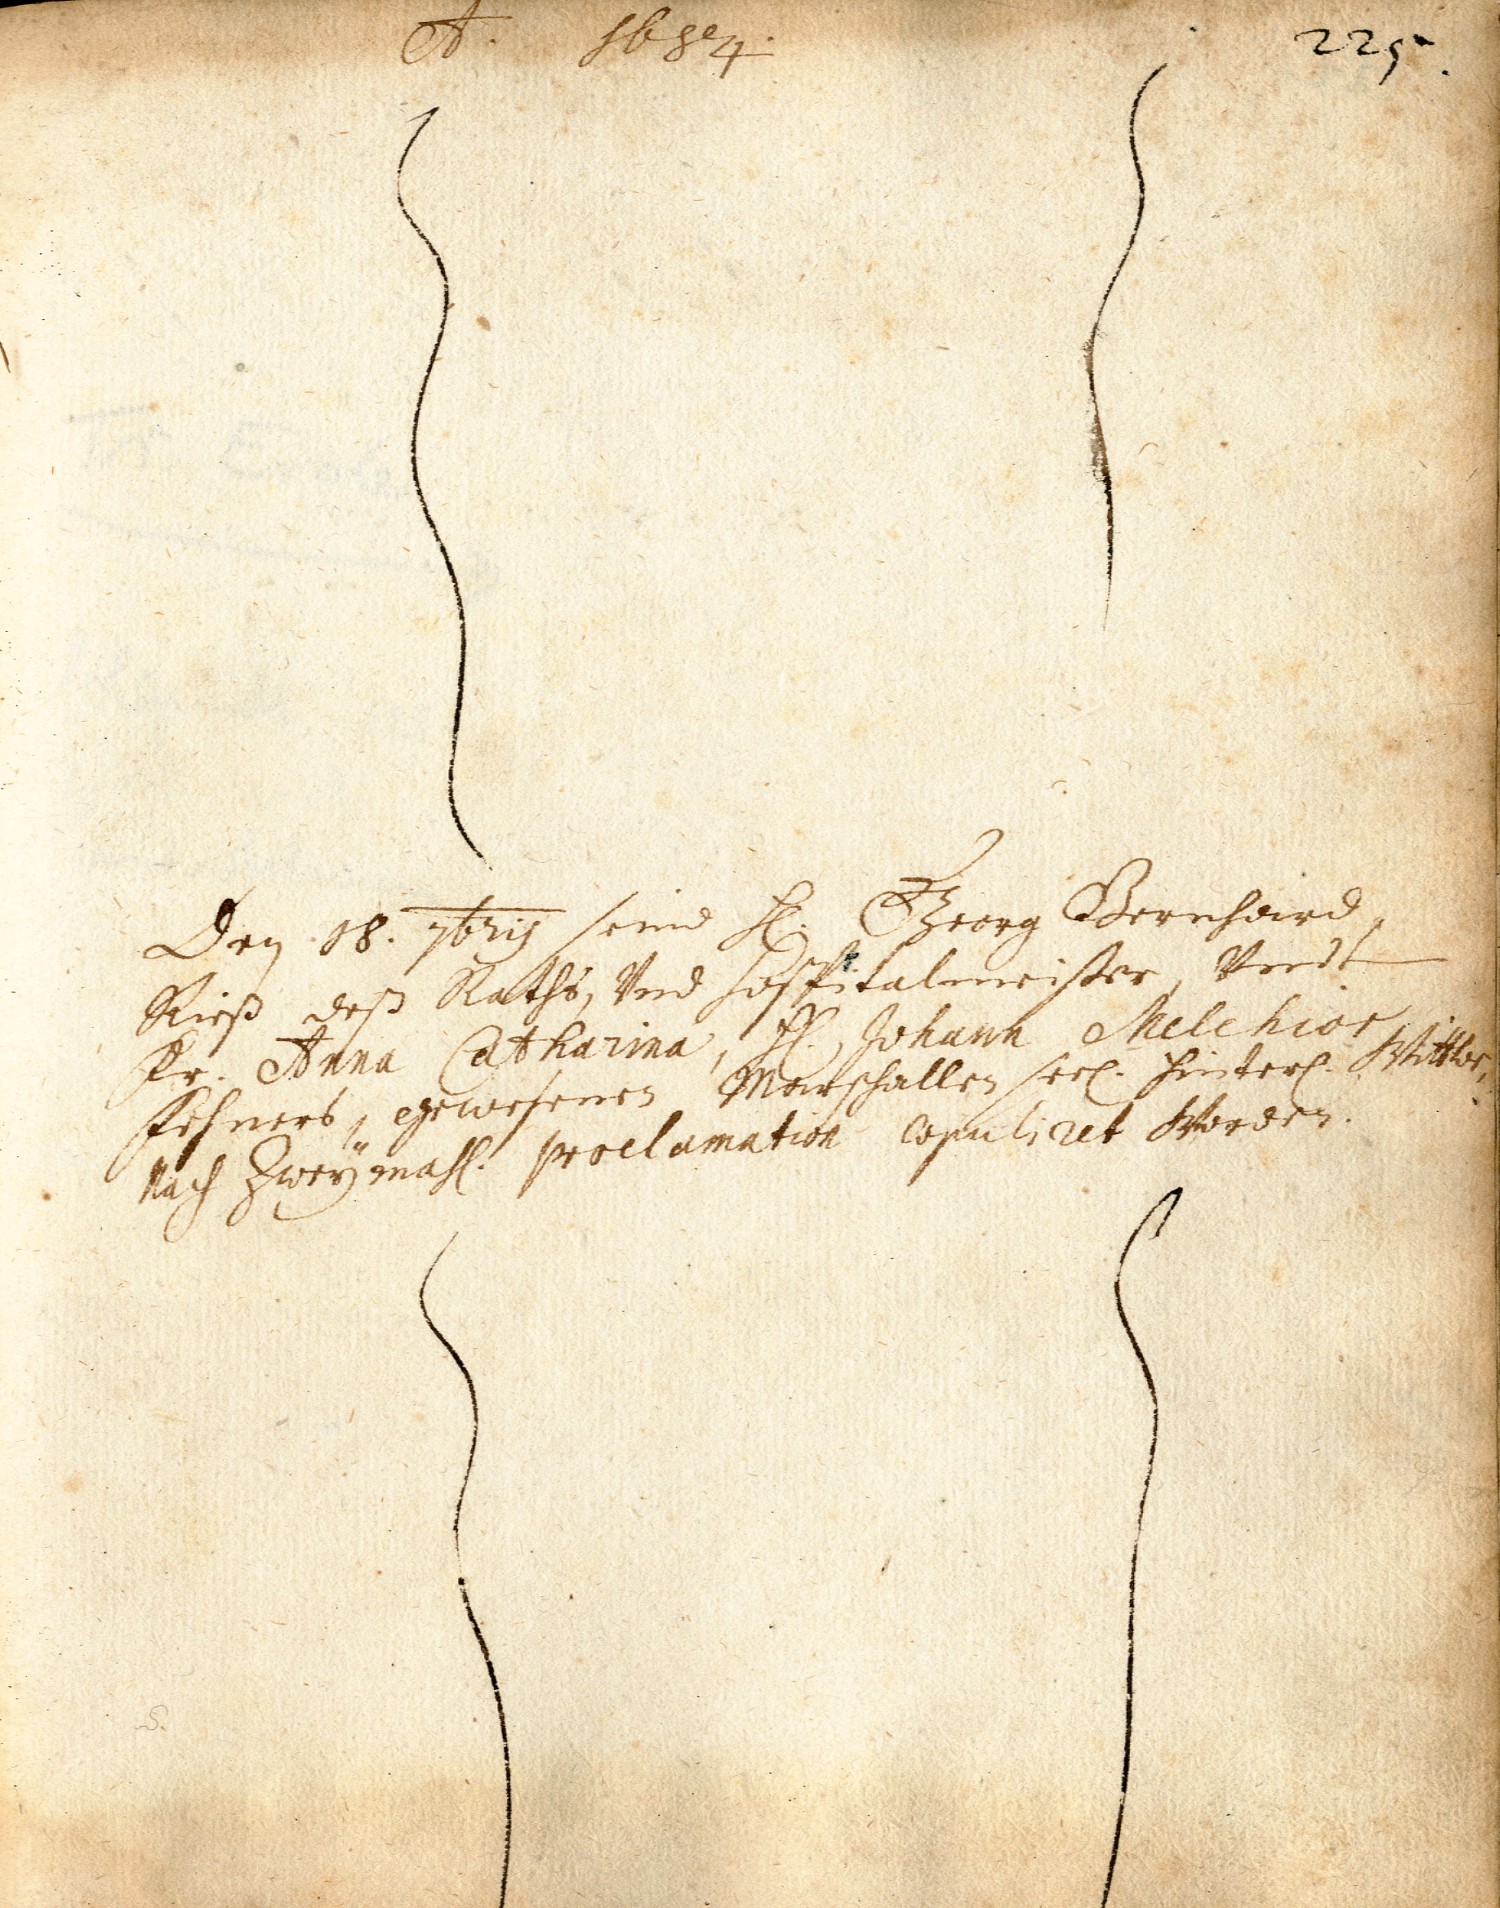 A. 1684.
225.
Den 18. 7bris seind H. Georg Bernhard
Rieß deß Raths, Vnd Hospitalmeister, Vndt
Fr. Anna Catharina, H. Johann Melchior
Fehners, gewesenen Marschallen seel. hinterl. Wittbe,
Nach Zweÿmahl. proclamation copuliret Worden.